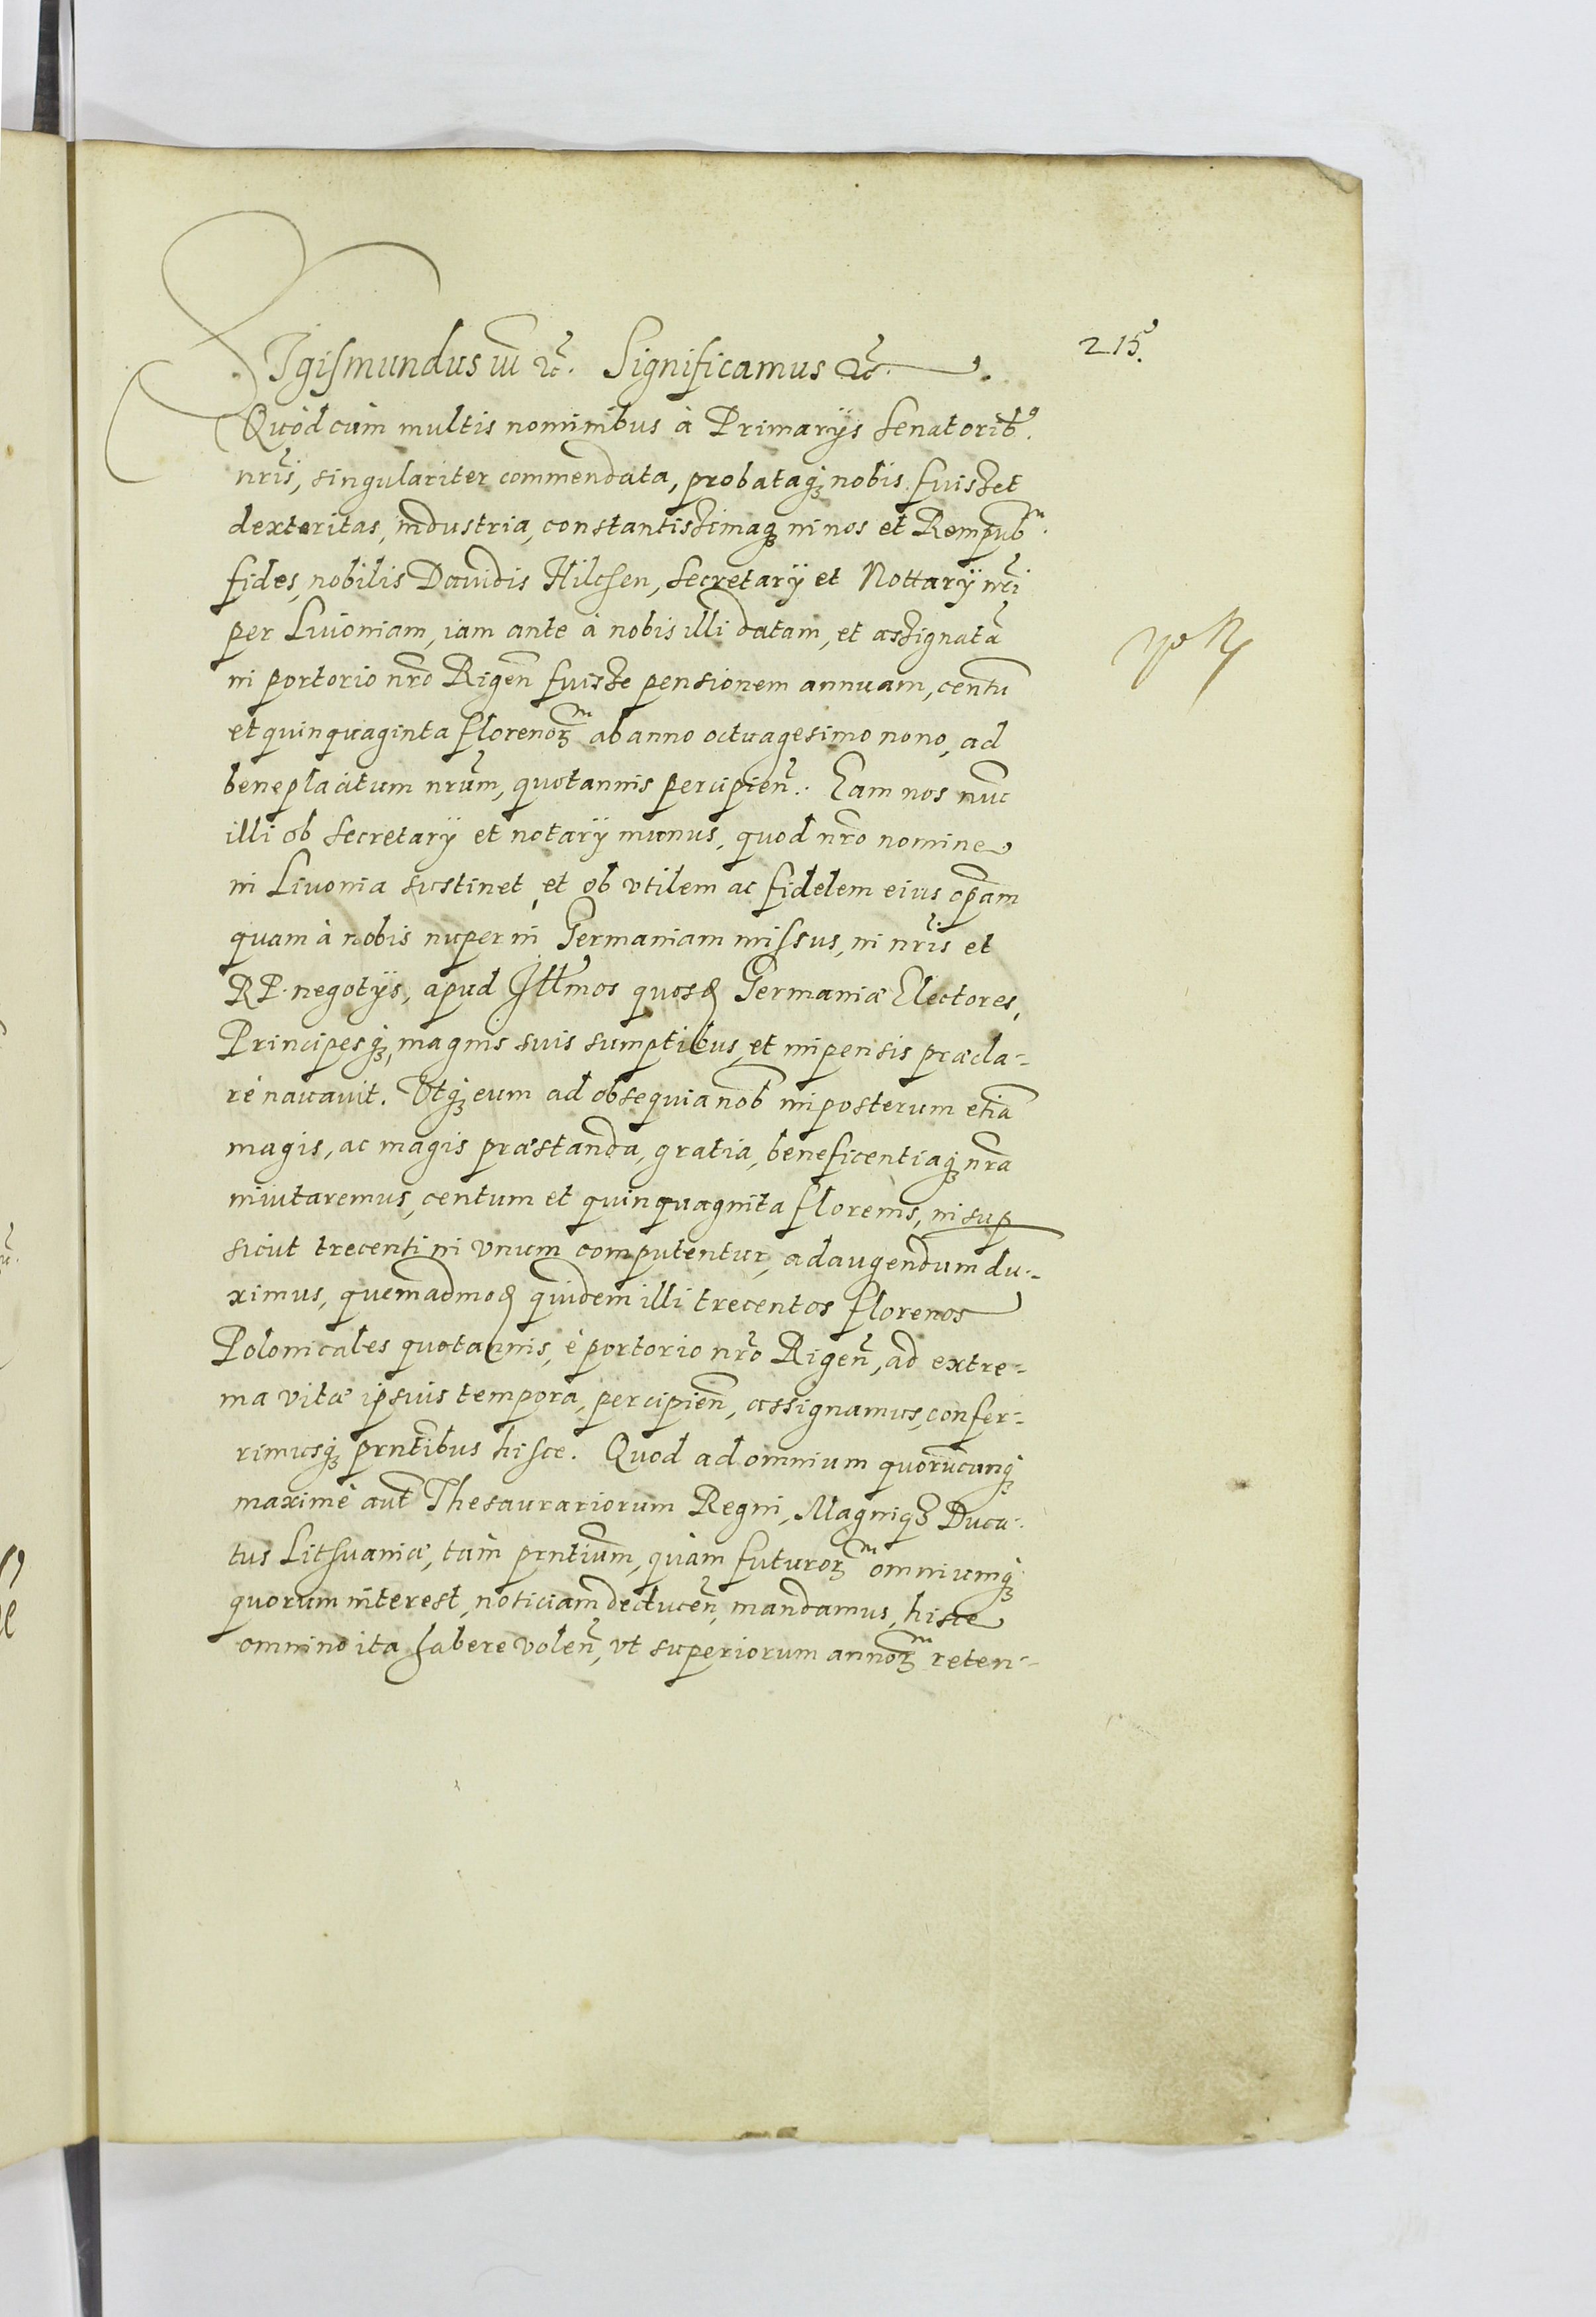 215.
Sigismundus III etc. Significamus etc.
Quòd cùm multis nominibus à Primarÿs Senatorib9.
nrĩs, singulariter commendata, probataq3 nobis fuisset
dexteritas, industria, constantissimaq3 in nos et Rempubm.
fides, nobilis Dauidis Hilchen, Secretarÿ et Nottarÿ nrĩ
per Liuoniam, iam ante à nobis illi datam, et assignatã
in portorio nrõ Rigeñ fuisse pensionem annuam, centũ
et quinquaginta florenor̃m ab anno octuagesimo nono, ad
beneplacitum nrũm, quotannis percipieñ. Eam nos nũc
illi ob Secretarÿ et notarÿ munus, quod nrõ nomine
in Liuonia sustinet, et ob vtilem ac fidelem eius oꝑam
quam à nobis nuper in Germaniam missus, in nrĩs et
RP. negotÿs, apud Illmos quosd Germaniæ Electores,
Principesq3, magnis suis sumptibus, et impensis præcla-
rè nauauit. Vtq3 eum ad obsequia nob̃ inposterum etiã
magis, ac magis præstanda, gratia, beneficentiaq3 nrã
inuitaremus, centum et quinquaginta florenis, insuꝑ
sicut trecenti in vnum computentur, adaugendum du-
ximus, quemadmod quidem illi trecentos florenos
Polonicales quotannis, è portorio nrõ Rigeñ, ad extre-
ma vitæ ipsius tempora, percipieñ, assignamus, confer-
rimusq3 prñtibus hisce. Quod ad omnium quorũcunq3
maximè aũt Thesaurariorum Regni, Magniq3 Duca-
tus Lithuaniæ, tàm prñtium, quàm futuror̃m omniumq3
quorum interest, noticiam deduceñ, mandamus, hisce
omnino ita habere voleñ, vt superiorum annor̃m reten-